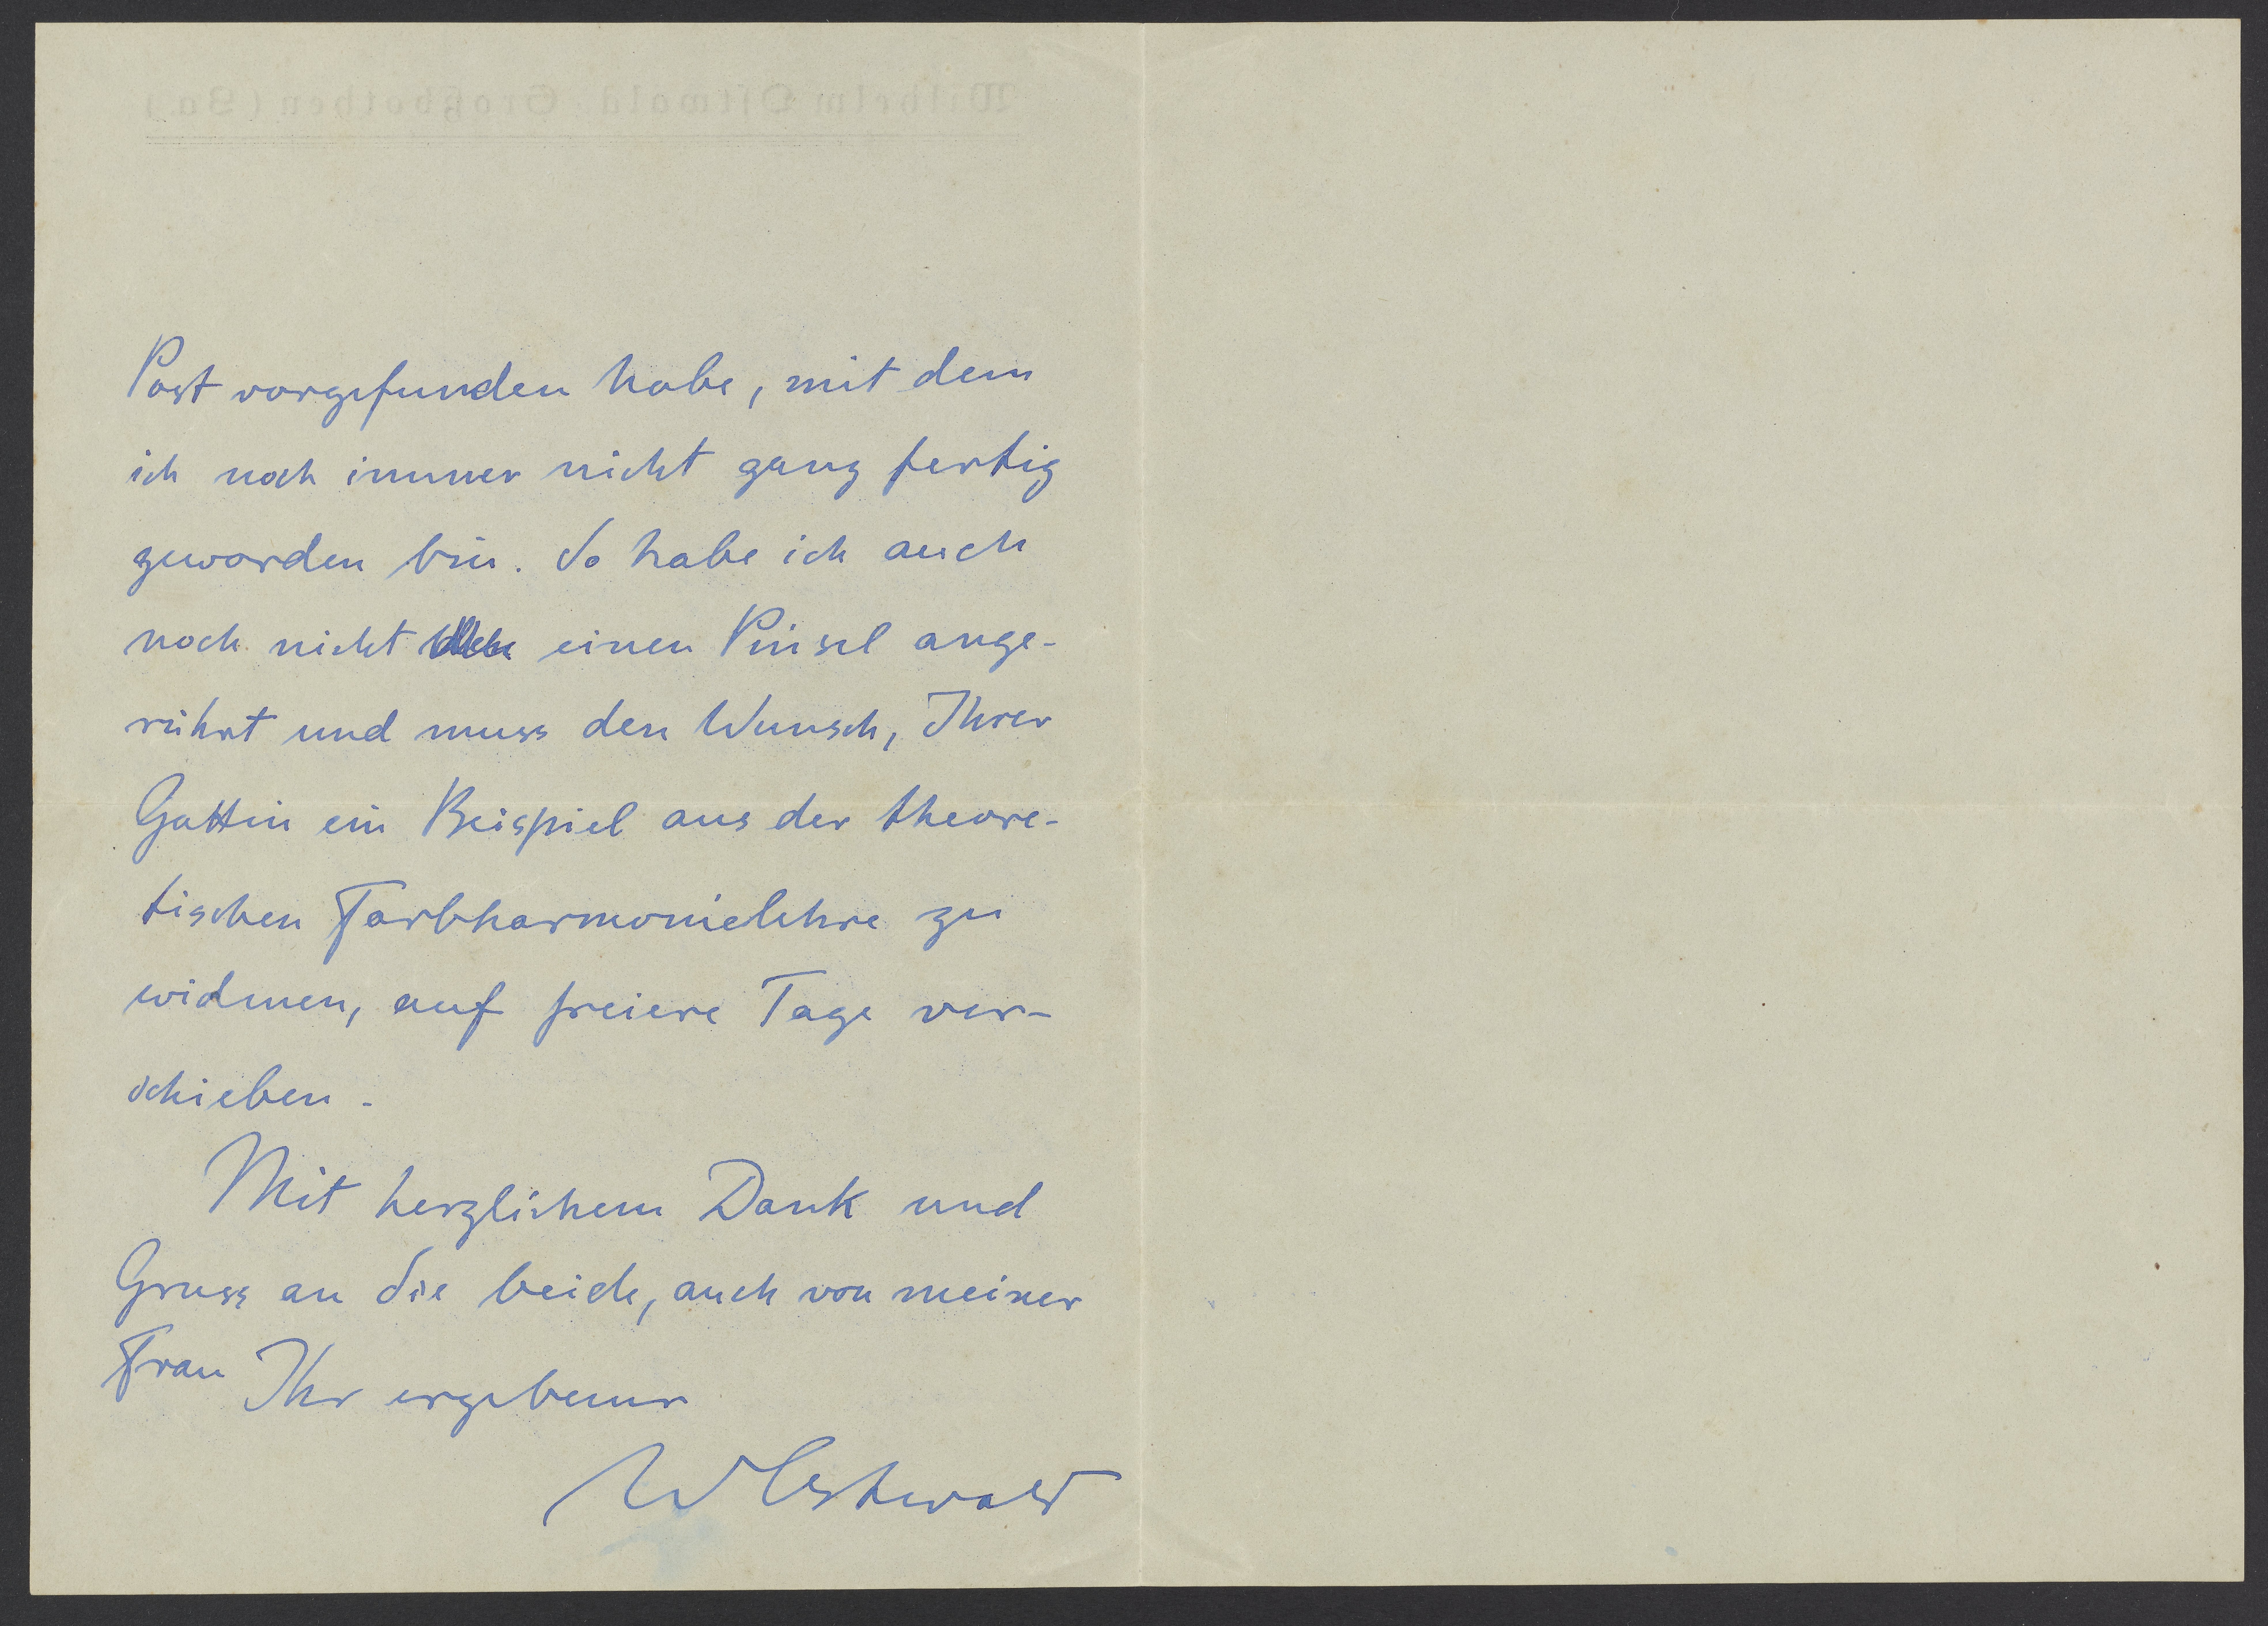 Wilhelm Ostwald, Großbothen (Sa.)
Post vorgefunden habe, mit dem
ich noch immer nicht ganz fertig
geworden bin. So habe ich auch
noch nicht einen Pinsel ange-
rührt und muss den Wunsch, Ihrer
Gattin ein Beispiel aus der theore-
tischen Farbharmonielehre zu
widmen, auf freiere Tage ver-
schieben.
Mit herzlichem Dank und
Gruss an Sie beide, auch von meiner
Frau Ihr ergebener
W Ostwald